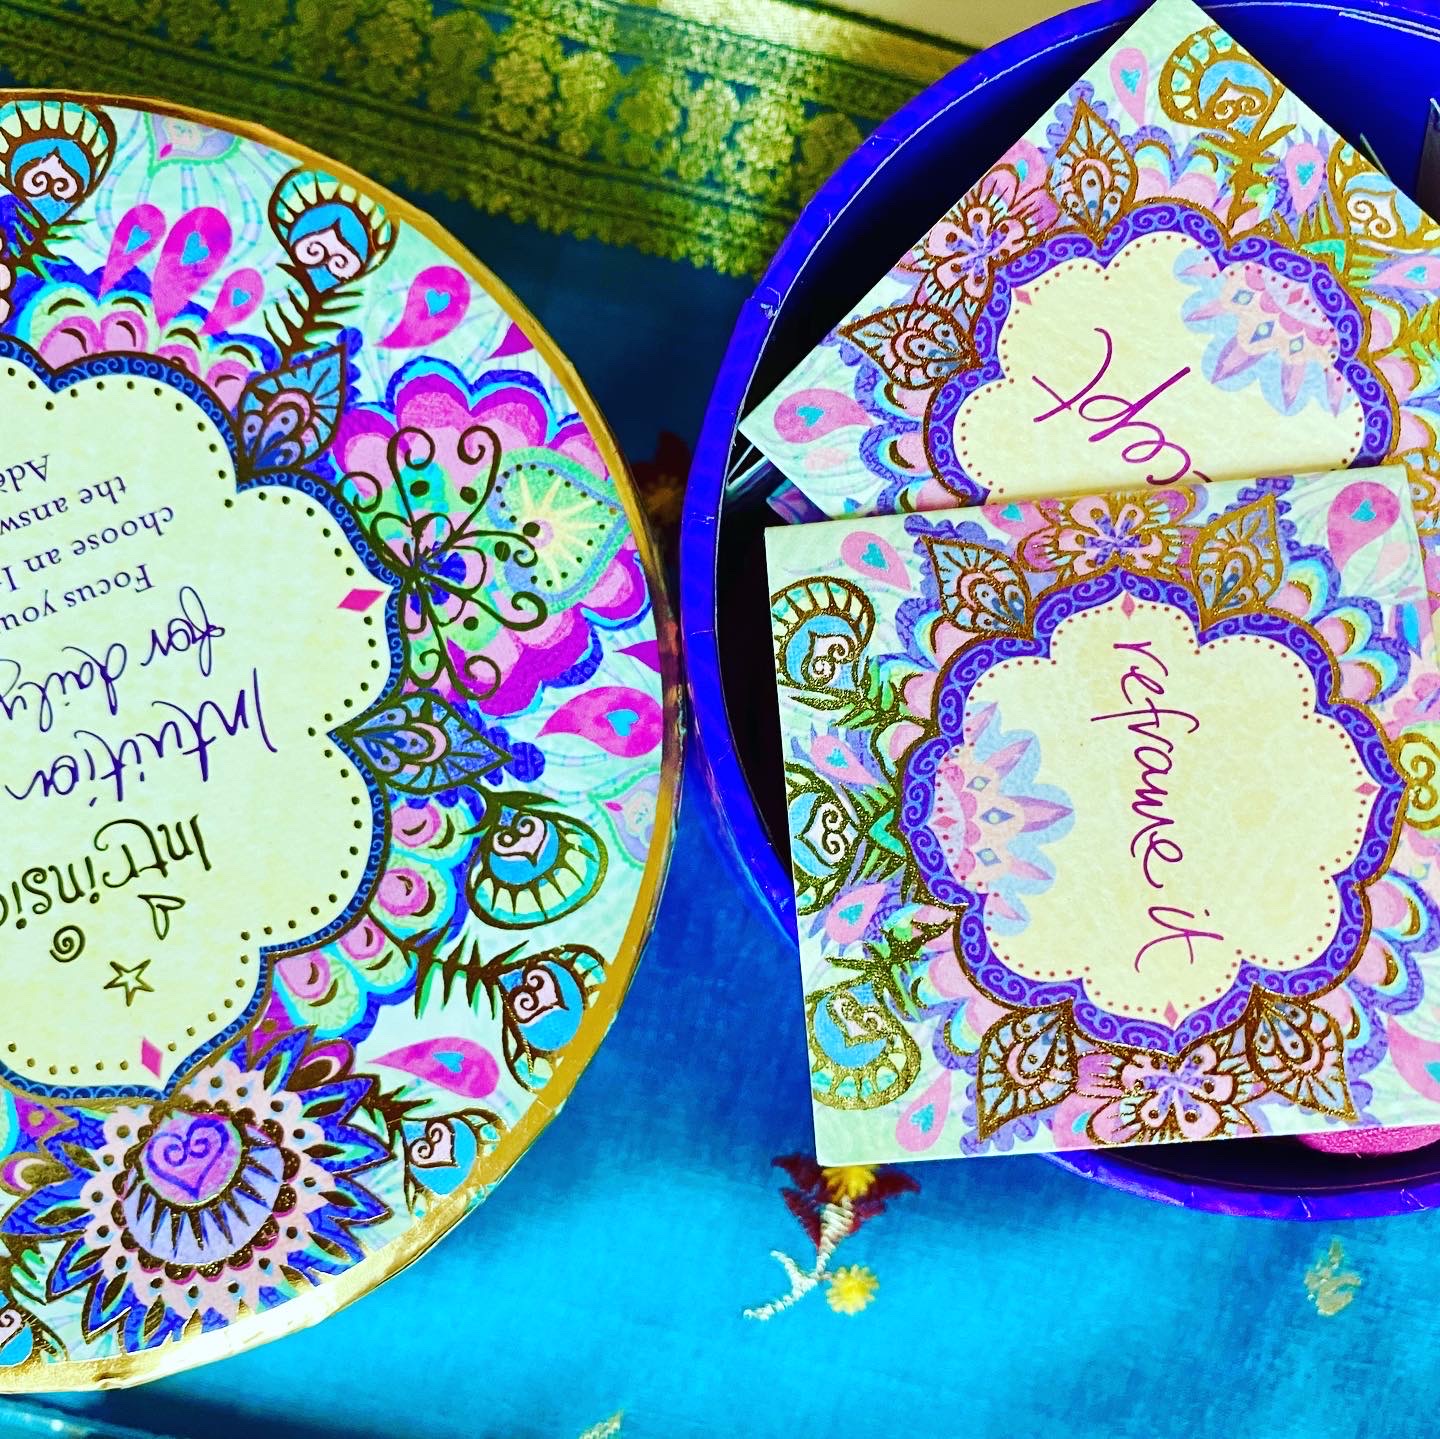 Intrinsic
Intuition
for daily
Focus you
choose an I-
the answ
Adè
cept
reframe it